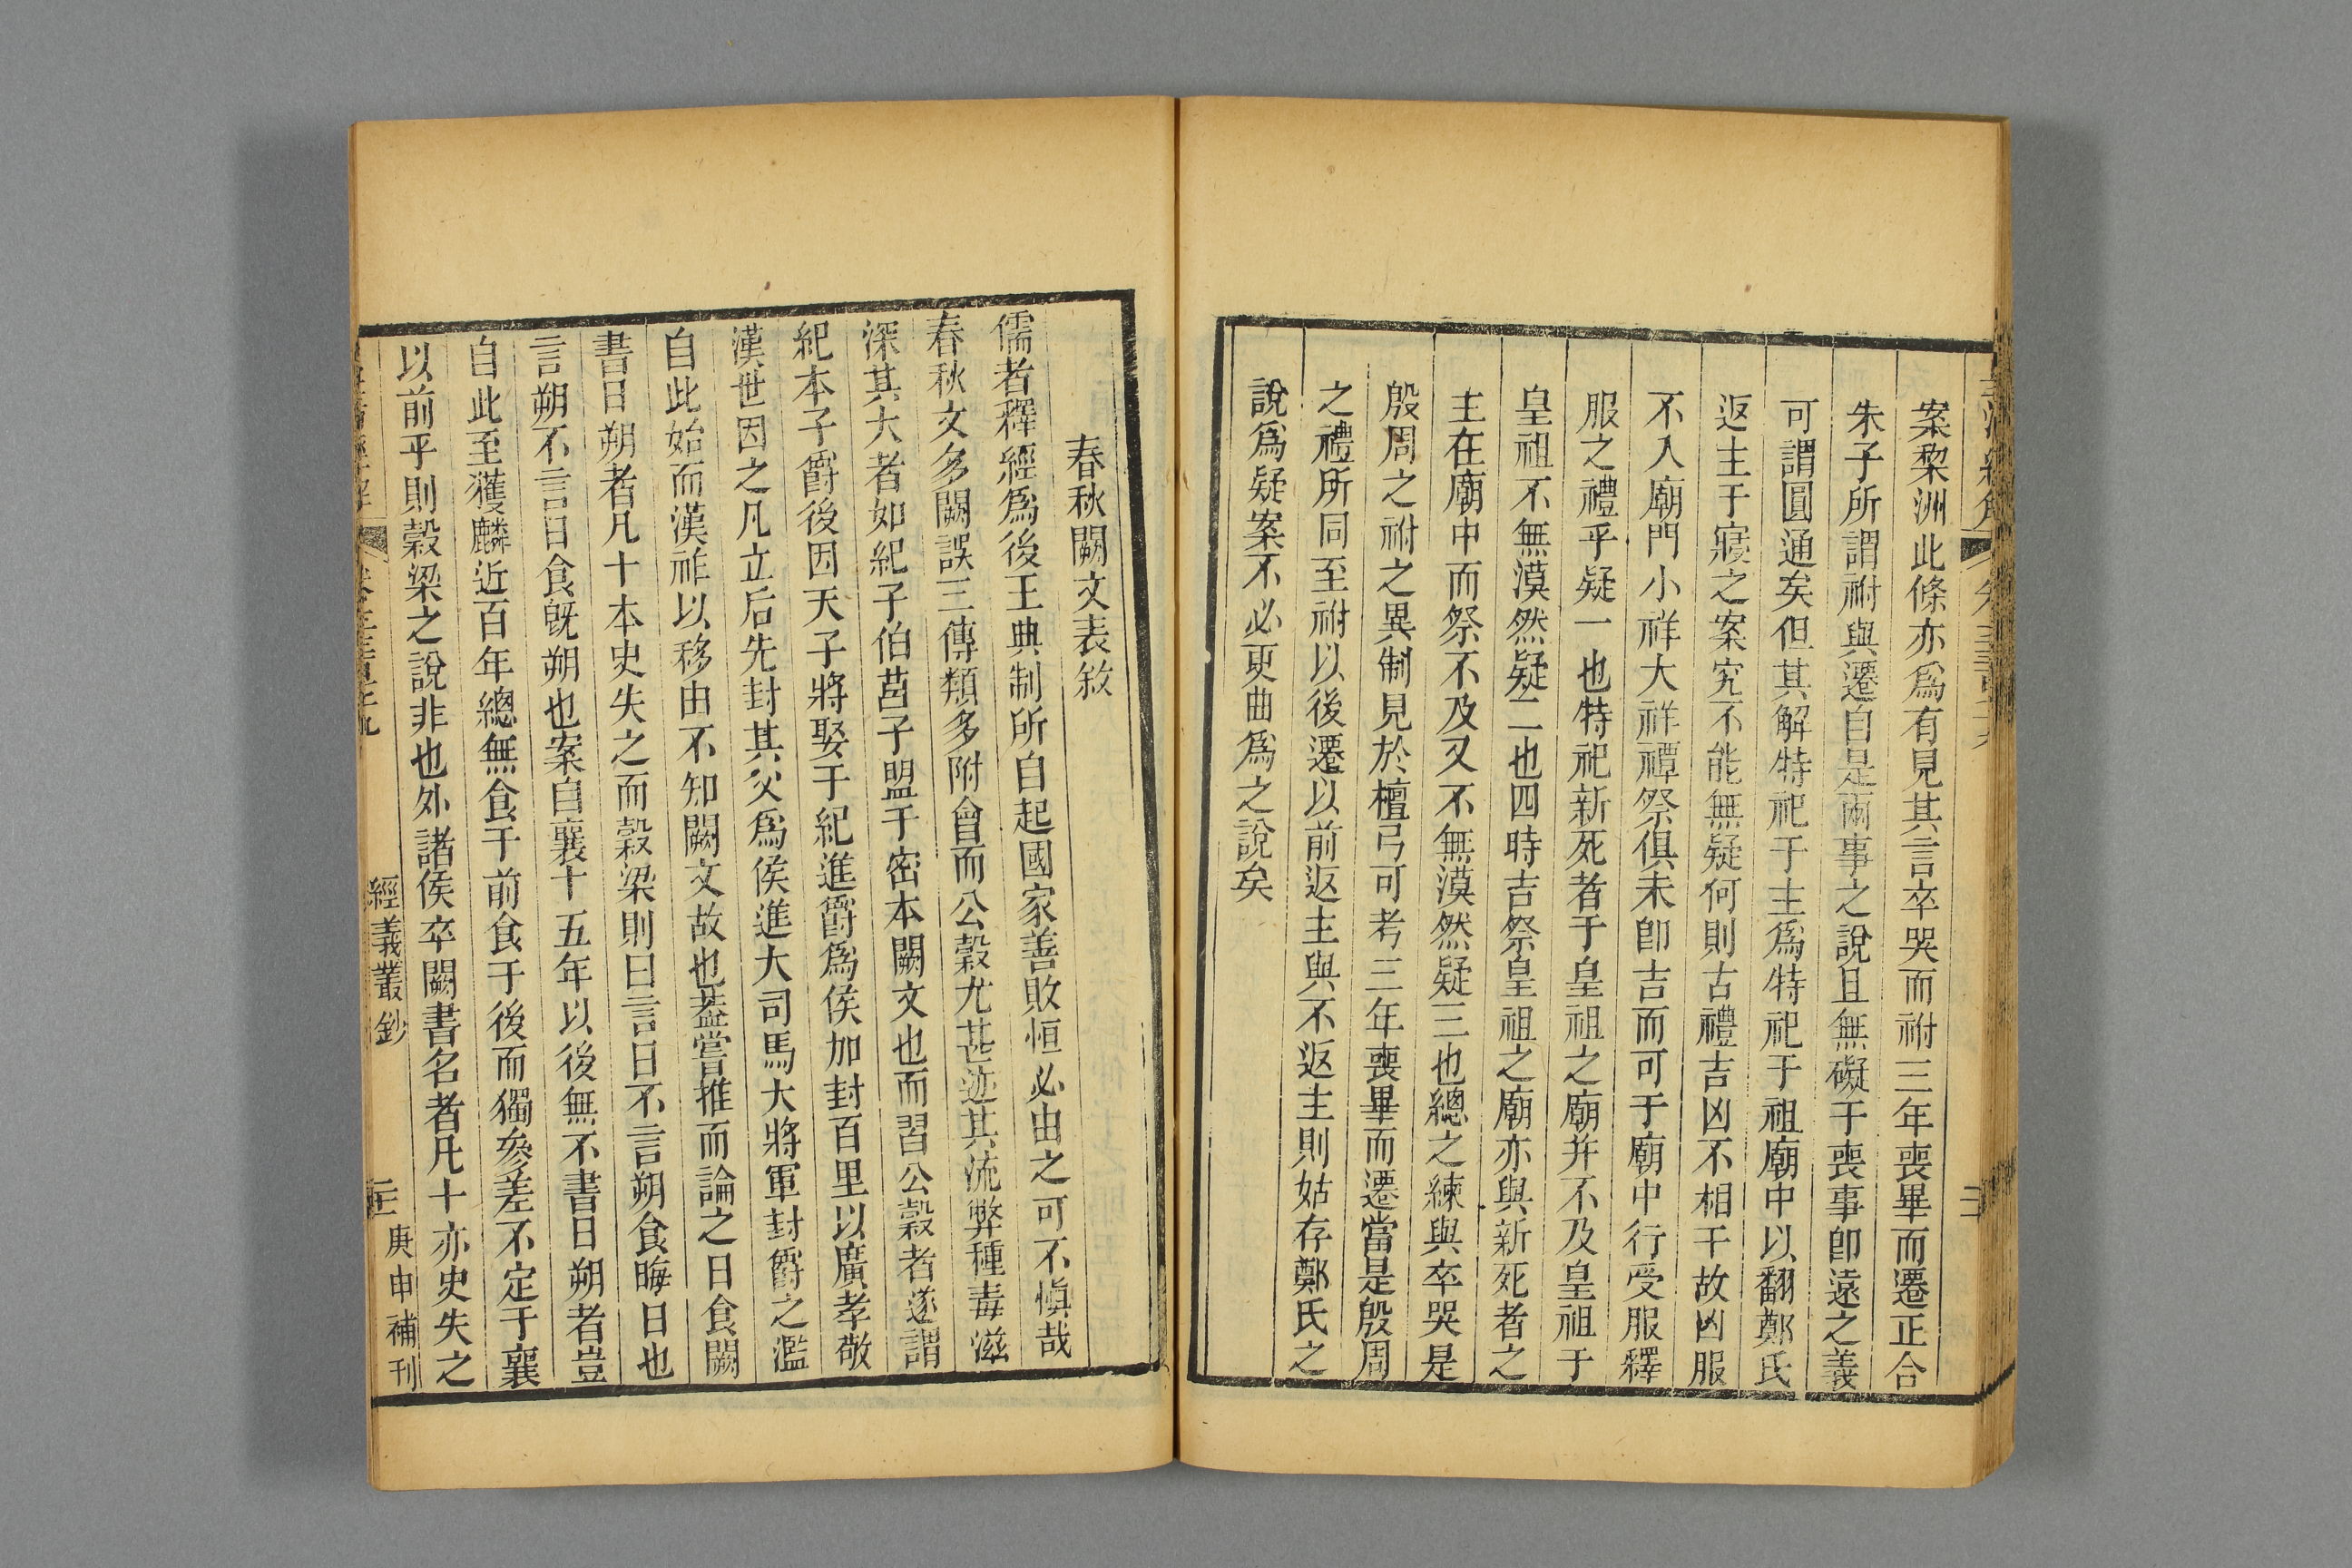 案棃洲此條亦爲有見其言卒哭而祔三年喪畢而遷正合
朱子所謂祔與遷自是兩事之說且無礙于喪事卽遠之義
可謂圓通矣但其解特祀于主爲特祀于祖廟中以翻鄭氏
返主于寢之案究不能無疑何則古禮吉凶不相干故凶服
不入廟門小祥大祥禫祭俱未卽吉而可于廟中行受服釋
服之禮乎疑一也特祀新死者于皇祖之廟并不及皇祖于
皇祖不無漠然疑二也四時吉祭皇祖之廟亦與新死者之
主在廟中而祭不及又不無漠然疑三也總之練與卒哭是
殷周之祔之異制見於檀弓可考三年喪畢而遷當是殷周
之禮所同至祔以後遷以前返主與不返主則姑存鄭氏之
說爲疑案不必更曲爲之說矣
春秋闕文表敘
儒者釋經爲後王典制所自起國家善敗恒必由之可不愼哉
春秋文多闕誤三傳類多附會而公穀尤甚迹其流弊種毒滋
深其大者如紀子伯莒子盟于密本闕文也而習公穀者遂謂
紀本子爵後因天子將娶于紀進爵爲侯加封百里以廣孝敬
漢世因之凡立后先封其父爲侯進大司馬大將軍封爵之濫
自此始而漢祚以移由不知闕文故也葢嘗推而論之日食闕
書日朔者凡十本史失之而穀梁則曰言日不言朔食晦日也
言朔不言日食旣朔也案自襄十五年以後無不書日朔者豈
自此至獲麟近百年總無食于前食于後而獨參差不定于襄
以前乎則穀梁之說非也外諸侯卒闕書名者凡十亦史失之
經義叢鈔
庚申補刊